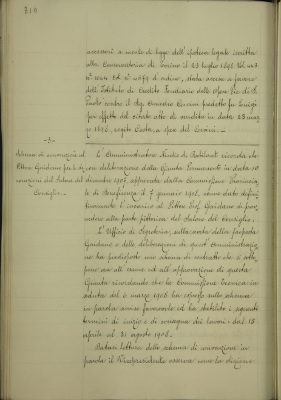 810
accessori a mente di legge dell'ipoteca legale iscritta
alla Conservatoria di Torino il 28 luglio 1896 Vol.
d'ordine, stata accesa a favore
dell'Istituto di Credito Fondiario delle Opere Pie di S.
Paolo contro il Sig. Cavaliere predetto fu Luigi
per effetto del citato atto di vendita in data 28 mag-
gio 1896, rogito Costa, a spese del
- 5 -
Adesione di convenzione col
Pittore Giordano per la de-
corazione del Salone del
Consiglio.
L'Amministratore Nicolis di Robilant ricorda che
con deliberazione della Giunta Permanente in data 10
dicembre 1907, approvata dalla Commissione Provinciale
di Beneficenza il 7 gennaio 1908, venne dato defini-
tivamente l'incarico al Pittore Prof. Giordano di prov-
vedere alla parte pittorica del Salone del Consiglio.
L'Ufficio di Segreteria, sulla scorta della proposta
Giordano e delle deliberazioni di quest'Amministrazione,
ne ha predisposto uno schema di contratto che si sotto-
pone ora all'esame ed all'approvazione di questa
Giunta ricordando che la Commissione Tecnica in
seduta del 6 marzo 1908 ha espresso sullo schema
in parola avviso favorevole ed ha stabilito i seguenti
termini di inizio e di consegna dei lavori: dal 15
aprile al 31 agosto 1908.
Datasi lettura dello schema di convenzione in
parola il Vicepresidente osserva come la dizione